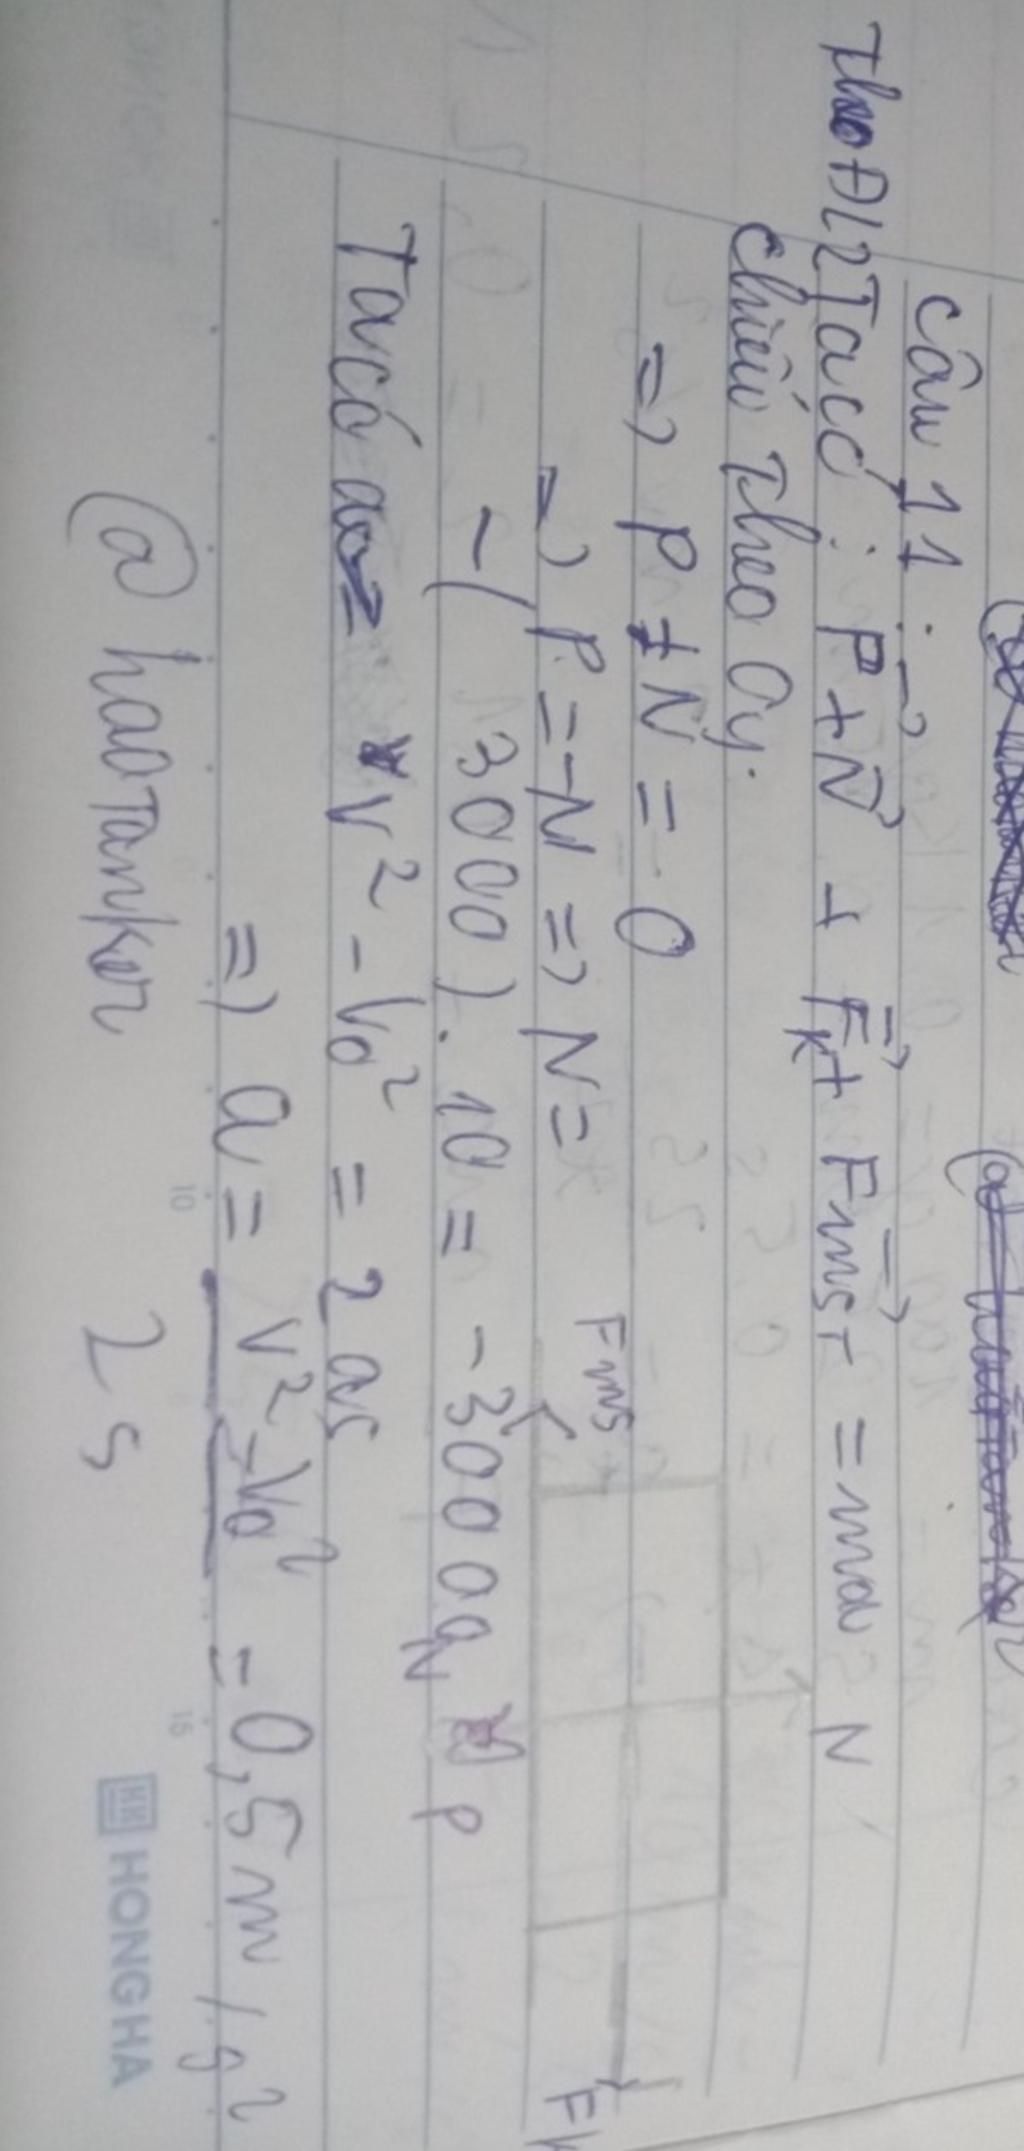 Câu 11:
Theo ĐL2 Ta có: P + N + Fk + Fmst = ma
Chiếu Theo Oy.
=> P + N = 0
=> P = -N => N =
-(3000).10 = -30000N
Ta có a = v² - v₀² = 2as
=> a = v² - v₀² / 2s = 0,5m/s²
N
Fms
P
@haotanker
10
15
HH HONG HA